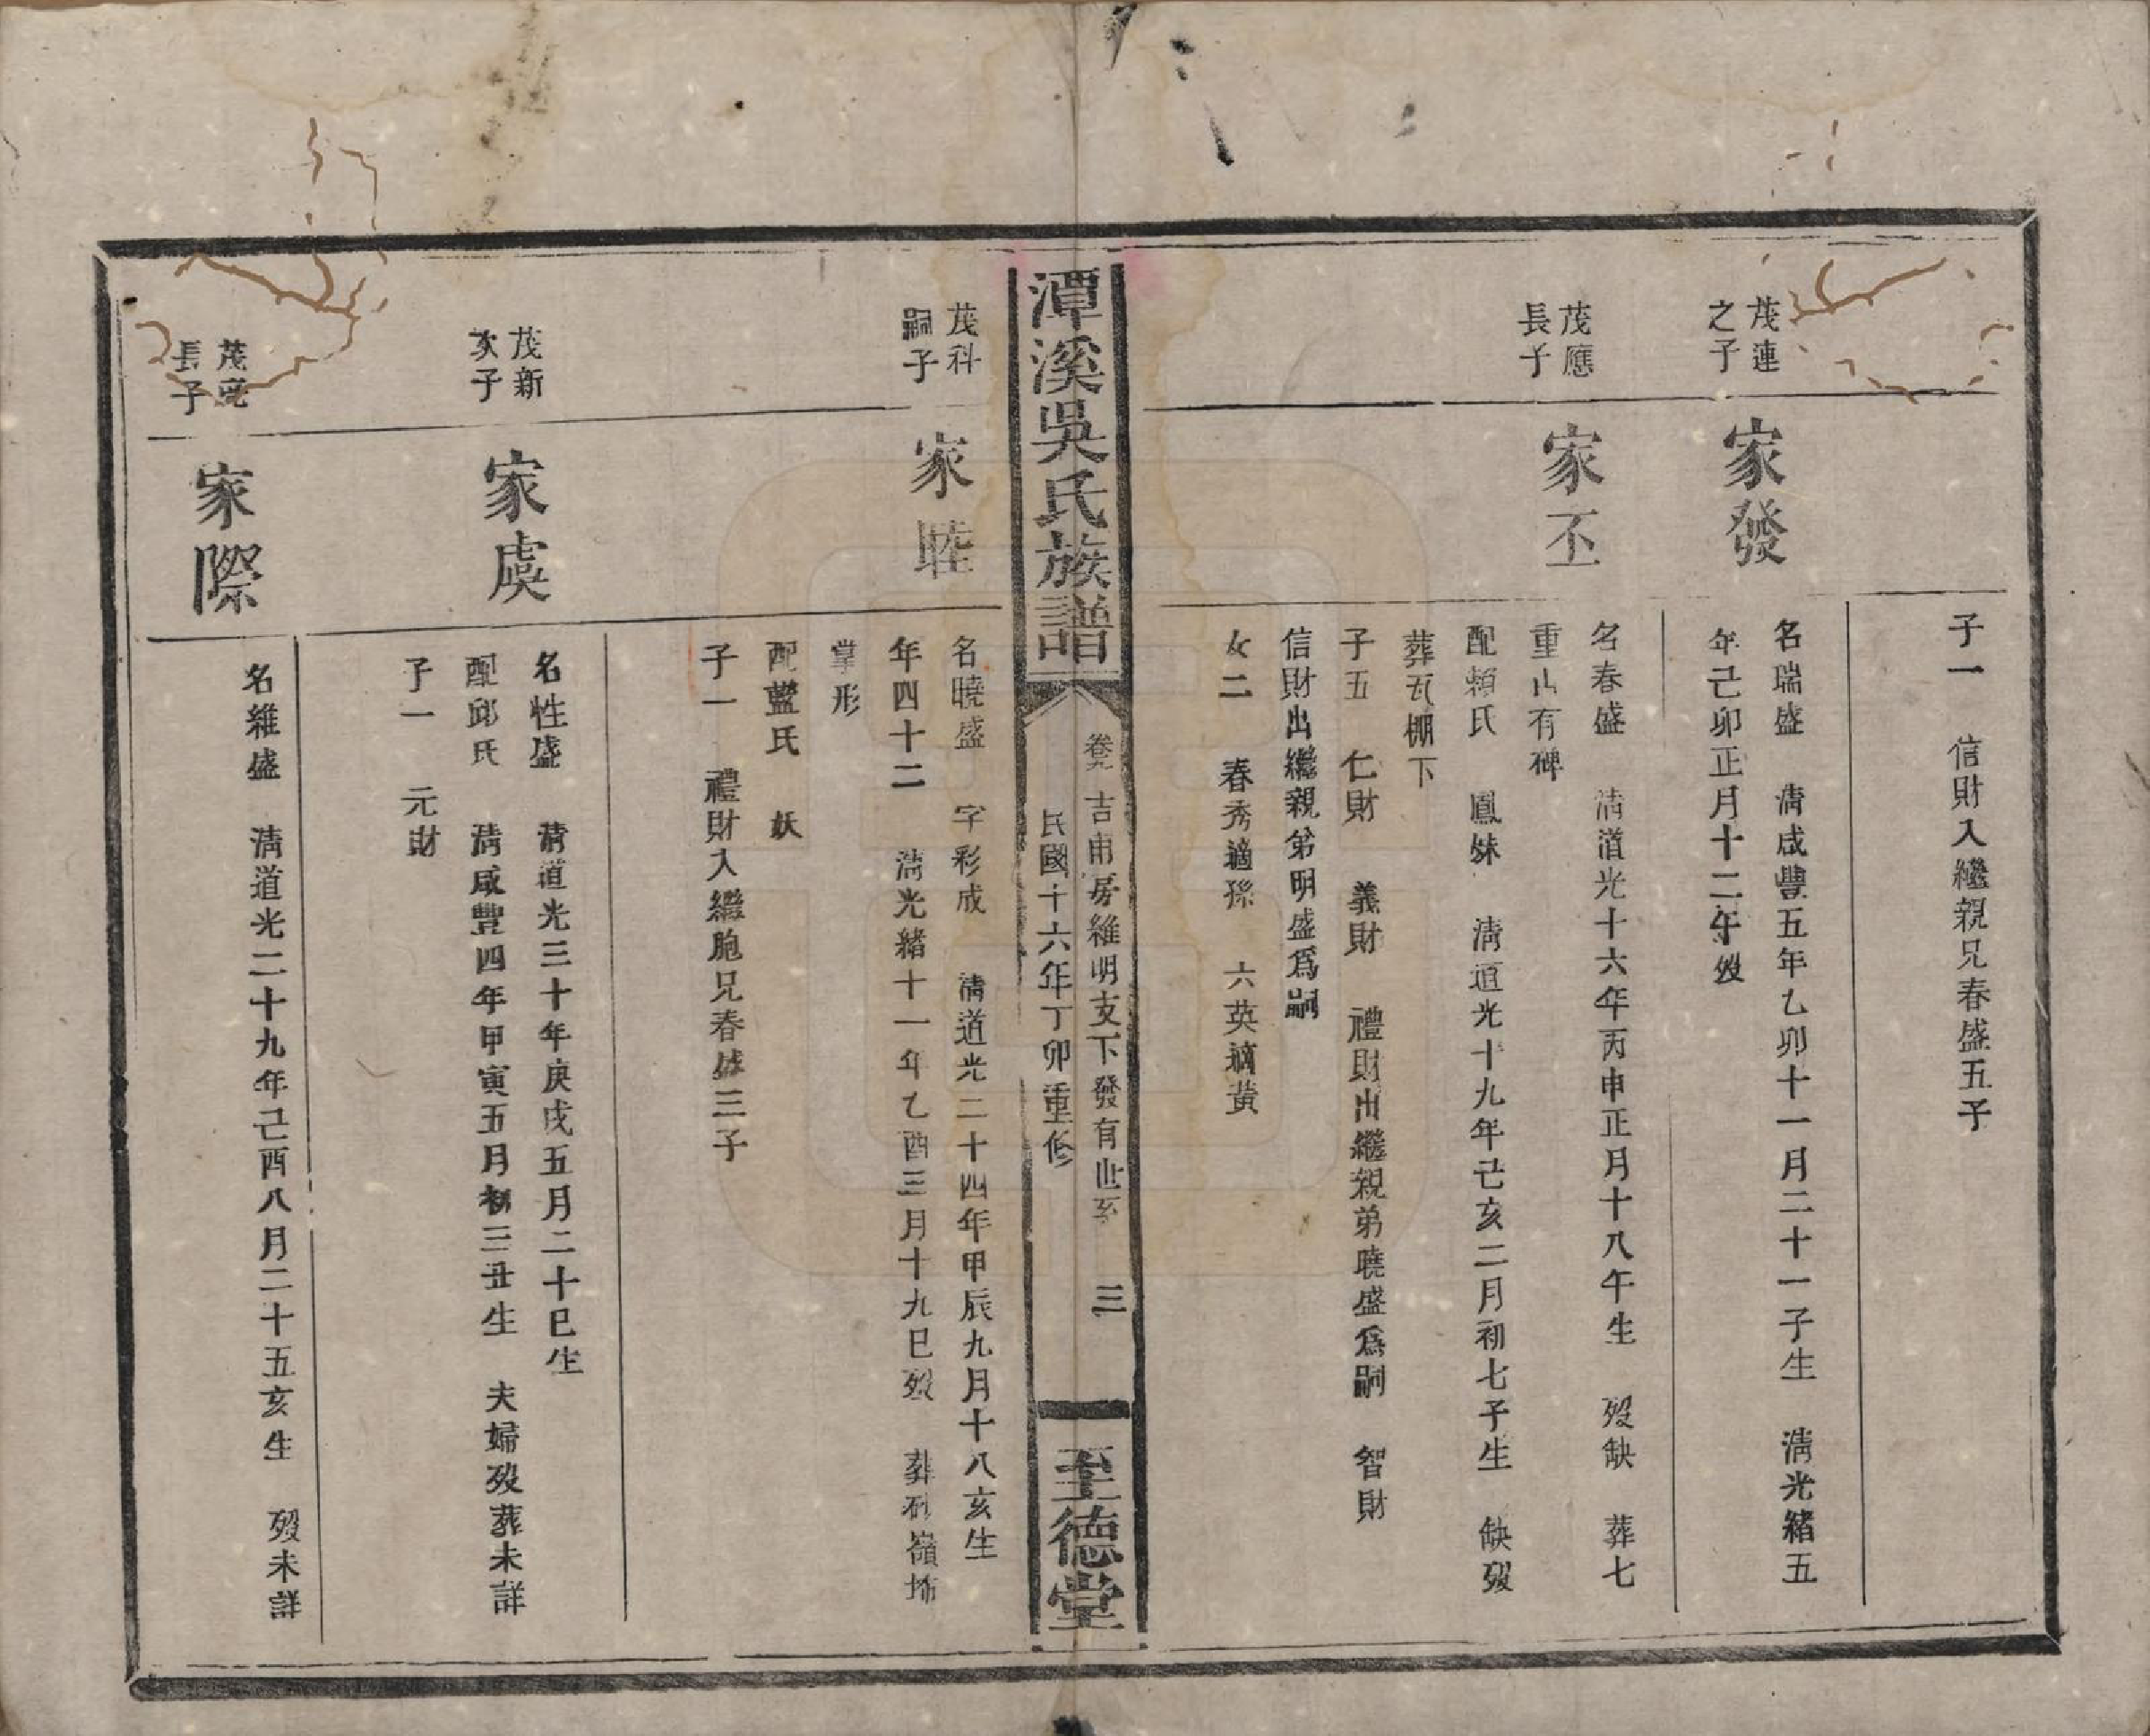 子一　信財入繼親兄春盛五子
茂連
之子
家發
名瑞盛　清咸豐五年乙卯十一月二十一子生　清光緒五
年己卯正月十二午歿
茂應
長子
家丕
名春盛　清道光十六年丙申正月十八午生　歿缺　葬七
重山有碑
配賴氏　鳳妹　清道光十九年己亥二月初七子生　缺歿
葬瓦棚下
子五　仁財　義財　禮財出繼親弟曉盛爲嗣　智財
信財出繼親弟明盛爲嗣
女二　春秀適孫　六英適黃
潭溪吳氏族譜
卷九　吉甫房維明支下發有世系　三
民國十六年丁卯重修
至德堂
茂科
嗣子
家睦
名曉盛　字彩成　清道光二十四年甲辰九月十八亥生
年四十二　清光緒十一年乙酉三月十九巳歿　葬砂嶺埔
掌形
配藍氏　妖
子一　禮財入繼胞兄春盛三子
茂新
次子
家虞
名性盛　清道光三十年庚戌五月二十巳生
配邱氏　清咸豐四年甲寅五月初三丑生　夫婦歿葬未詳
子一　元財
茂
長子
家際
名維盛　清道光二十九年己酉八月二十五亥生　歿未詳